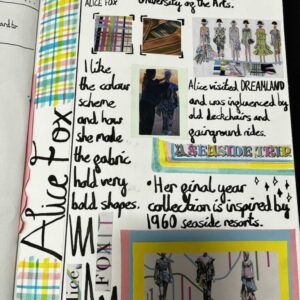 ALICE FOX
University of the Arts.
I like
the colour
scheme
and how
she made
the fabric
hold very
bold shapes.
Alice visited DREAMLAND
and was influenced by
old deckchairs and
fairground rides.
A SEASIDE TRIP
•Her final year
collection is inspired by
1960 seaside resorts.
Alice Fox
Alice
FOX